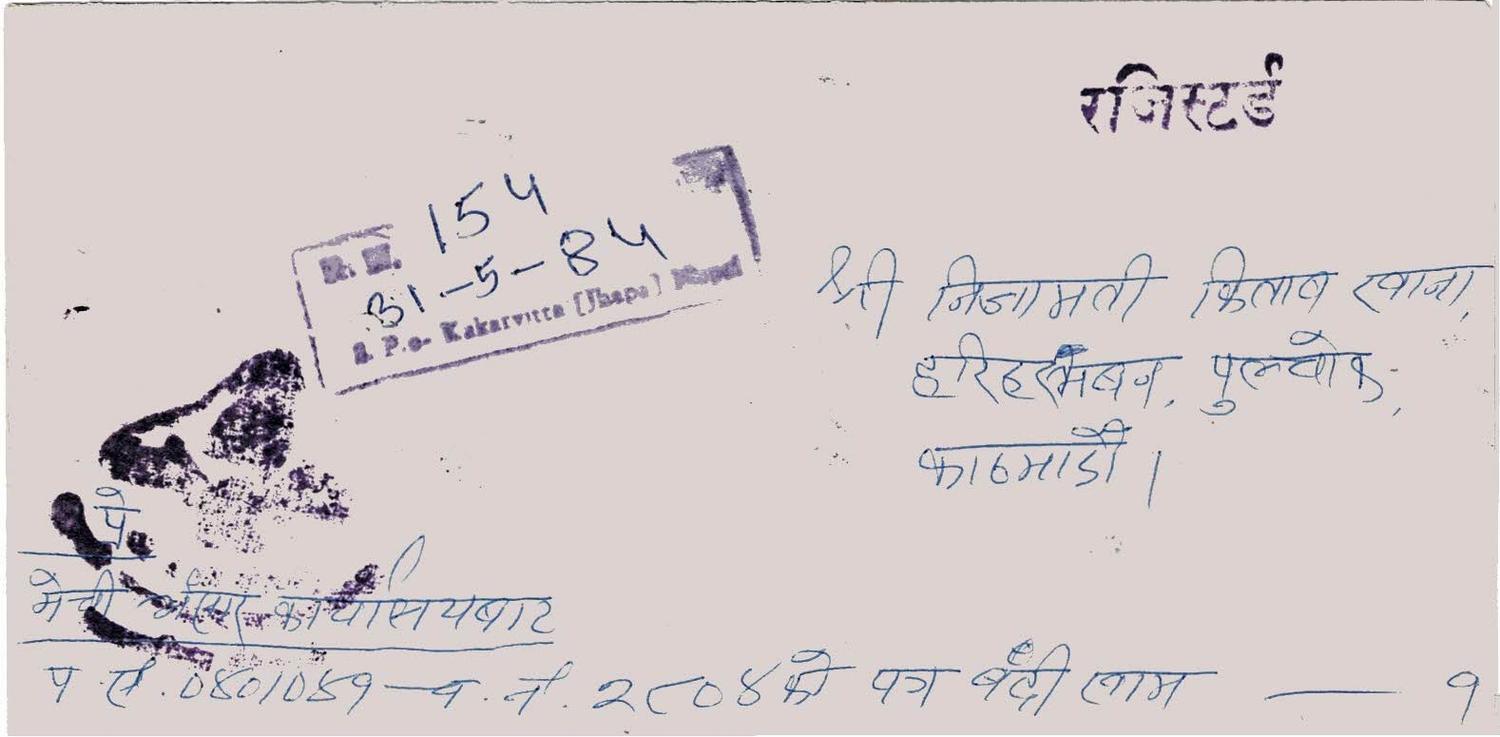 रजिस्टर्ड
R. N. 154
31-5-84
S. P.o- Kakarvitta (Jhapa) Nepal
श्री निजामती किताब खाना,
हरिहरभवन, पुल्चोक,
काठमाडौं।
प्रे.
मेची भंसार कार्यालयबाट
प.सं.०४०/०४१ – च.नं. २८०४ को पत्र बँदी लाम — १